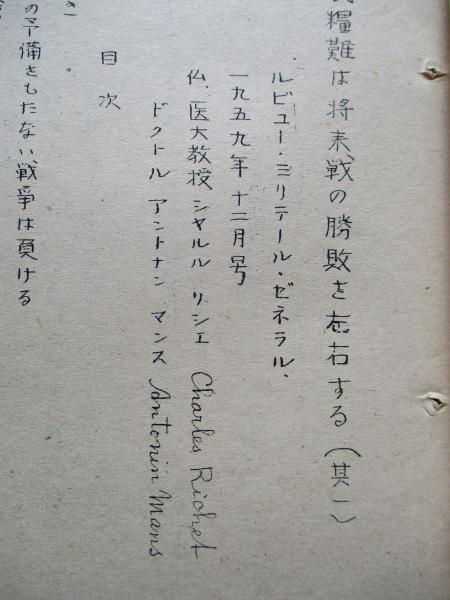 糧難は将来戦の勝敗を左右する（其一）
ルビュー・ミリテール・ゼネラル．
一九五九年 十二月号
仏．医大教授 シャルル リシエ Charles Richet
ドクトル アントナン マンス Antonin Mans
目次
の予備をもたない戦争は負ける